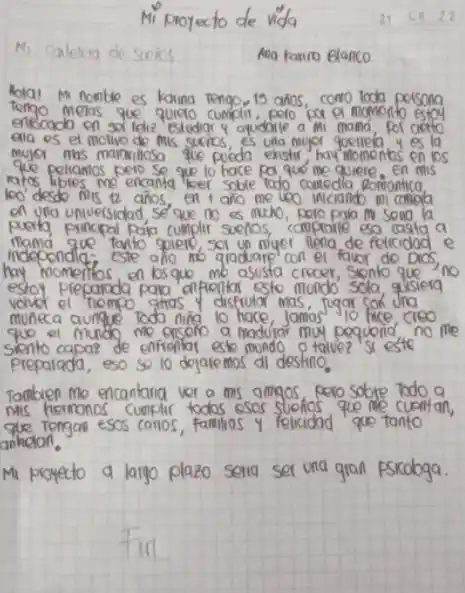 Mi proyecto de vida
Mi carta de sueños
Ana Karina Blanco
Hola! Mi nombre es Karina Tengo, 15 años, como Toda persona
Tengo metas que quiero cumplir, pero por el momento estoy
enfocada en ser feliz estudiar y ayudarle a mi mamá, por cierto
ella es el motivo de mis sueños, es una mujer guerrera y es la
mujer mas maravillosa que pueda existir, hay momentos en los
que peleamos pero se que lo hace por que me quiere. En mis
ratos libres me encanta leer sobre todo comedia Romantica,
leo desde mis 12 años, en 1 año me veo iniciando mi carrera
en una universidad, se que no es mucho, pero para mi sera la
puerta principal para cumplir sueños, comprarle esa casita a
mamá que Tanto quiere, ser un mujer llena de felicidad e
independia, Este año me graduare con el favor de Dios,
hay momentos en los que me asusta crecer, siento que no
estoy preparada para enfrentar este mundo sola, quisiera
volver el Tiempo atras y disfrutar mas, jugar con una
muñeca aunque Toda niña lo hace, jamas lo hice, creo
que el mundo me enseño a madurar muy pequeña, no me
siento capaz de enfrentar este mundo o talvez si este
preparada, eso se lo dejaremos al destino.
Tambien me encantaria ver a mis amigos, pero sobre Todo a
mis hermanos cumplir todos esos sueños que me cuentan,
que Tengan esos carros, familias y felicidad que tanto
anhelan.
Mi proyecto a largo plazo seria ser una gran psicologa.
Fin